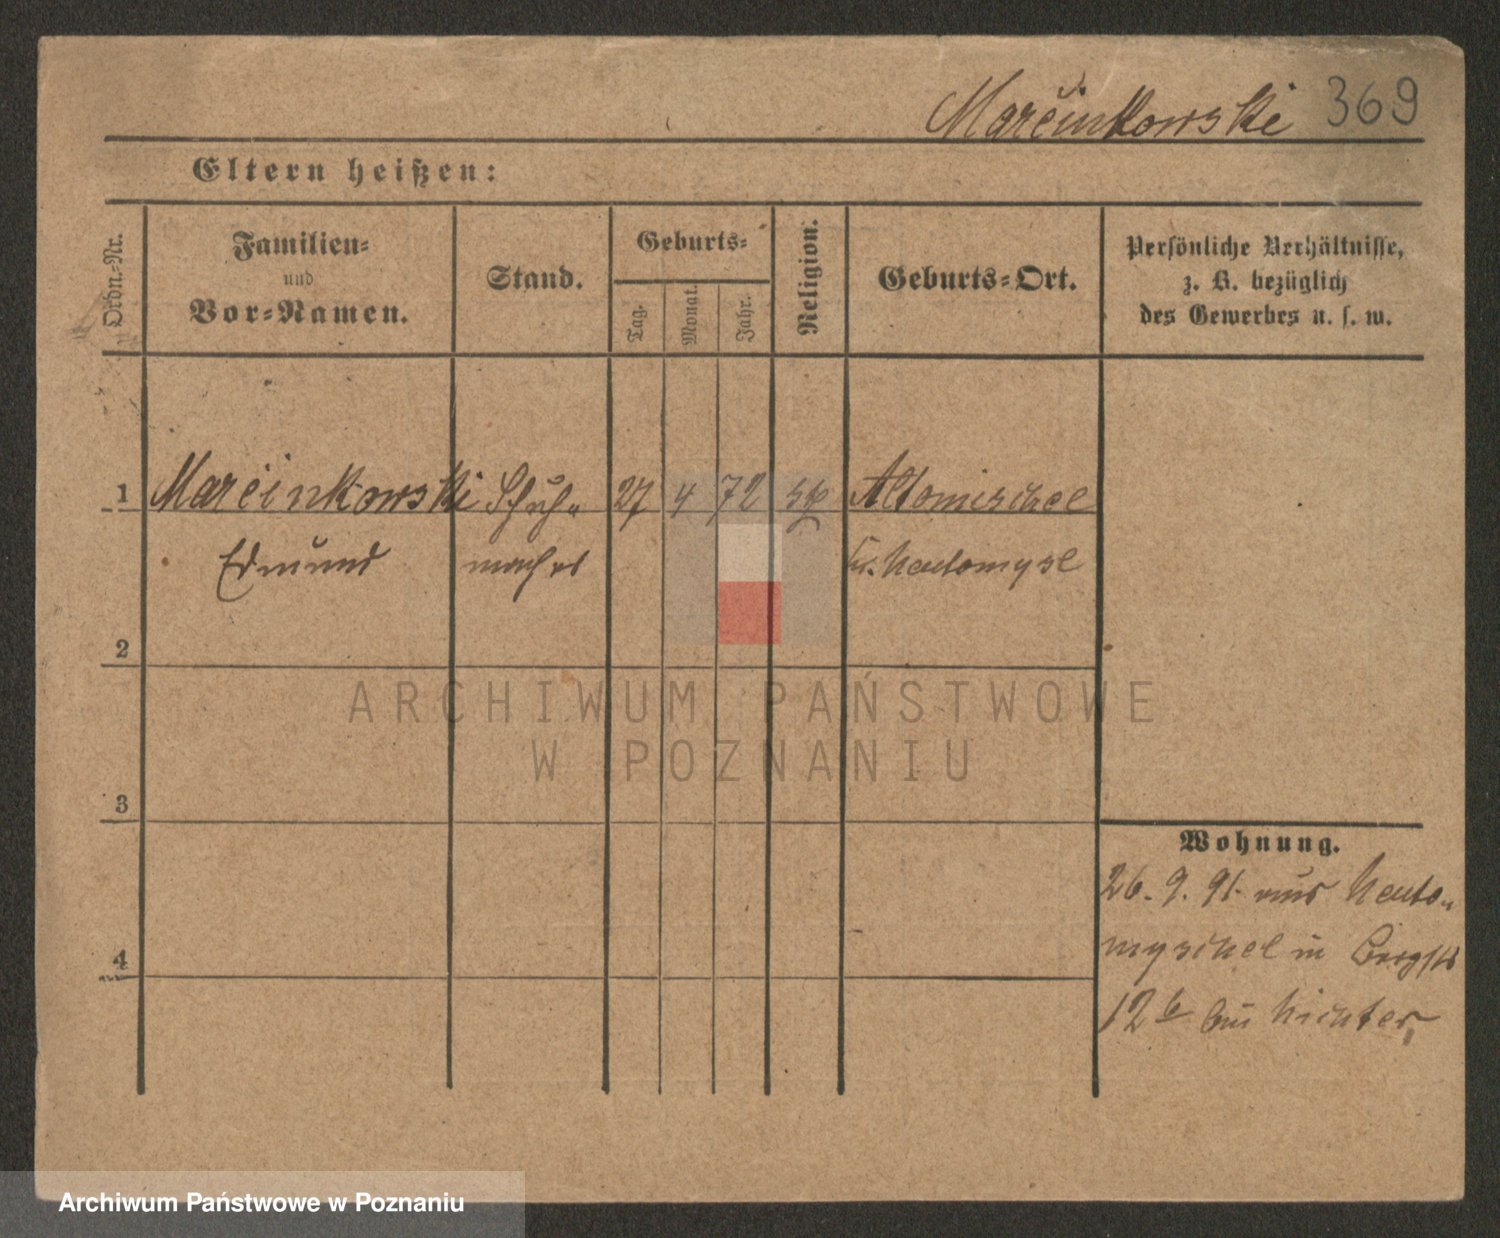 Marcinkowski 369
Eltern heißen:
Ordn.-Nr.
Familien-
und
Vor-Namen.
Stand.
Geburts-
Tag.
Monat.
Jahr.
Religion.
Geburts-Ort.
Persönliche Verhältnisse,
z. B. bezüglich
des Gewerbes u. s. w.
1 Marcinkowski Schuh- 27 4 72 Altomischel
Edmund macher Kr. Neutomysl
2
3
4
Wohnung.
26. 9. 91. aus Neuto-
myschel in Bergstr
12 b bei Richter
ARCHIWUM PAŃSTWOWE
W POZNANIU
Archiwum Państwowe w Poznaniu